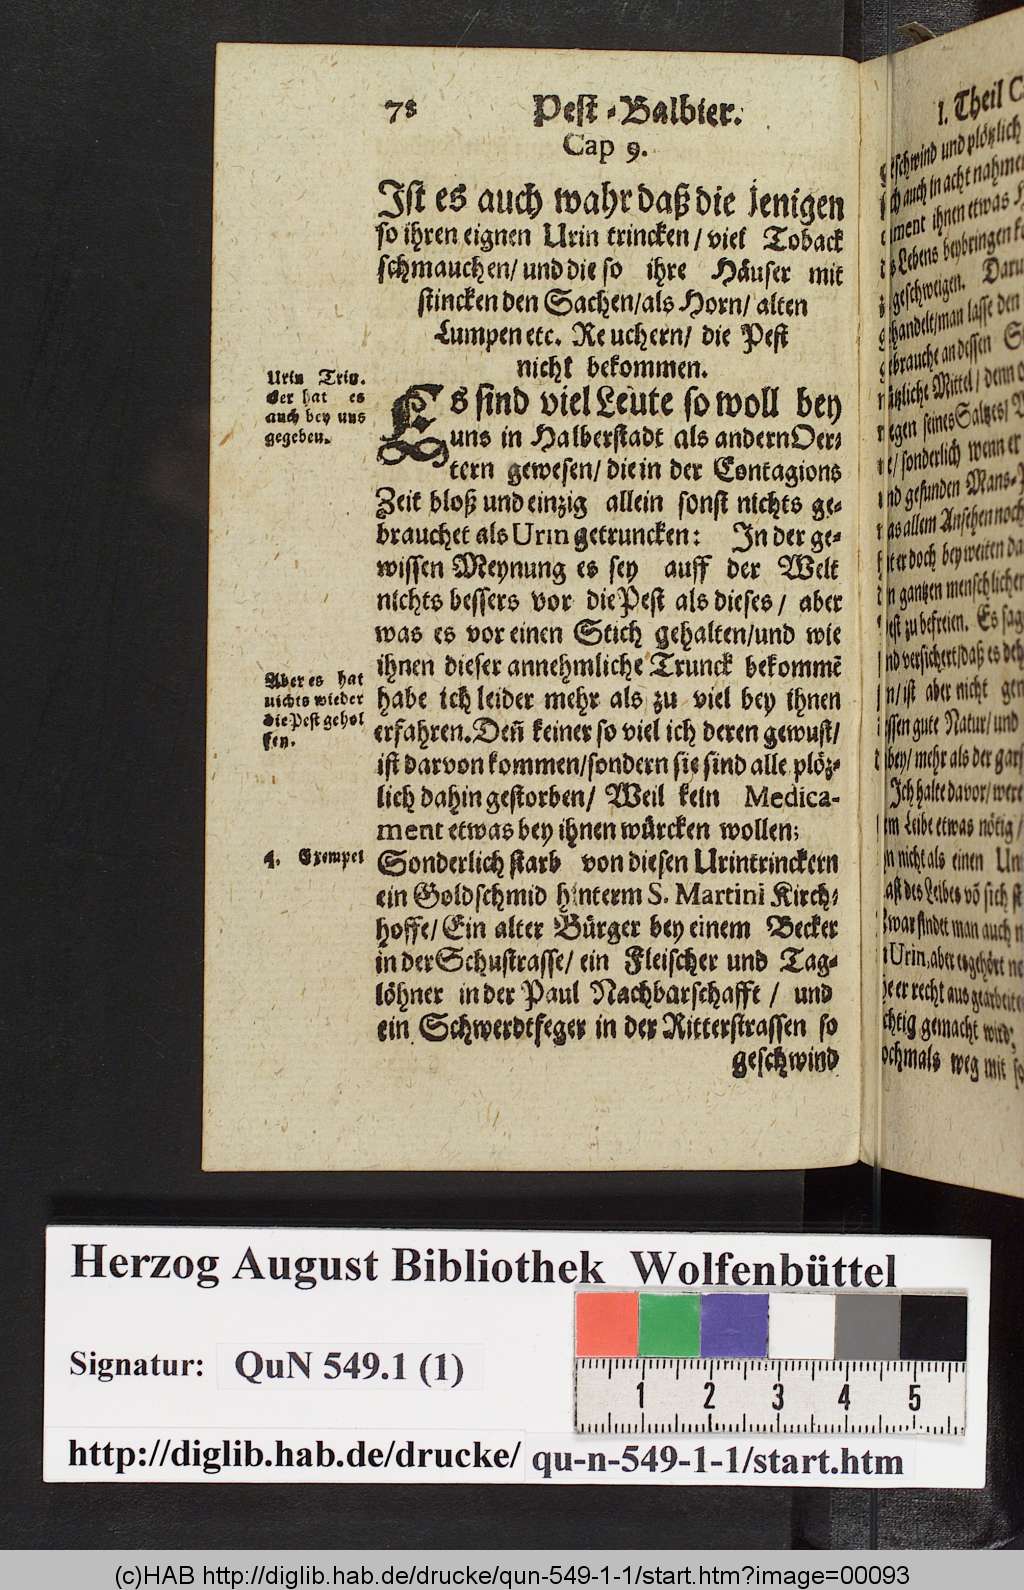 78 Pest-Balbier.
Cap 9.
Ist es auch wahr daß die jenigen
so ihren eignen Urin trincken/ viel Toback
schmauchen/ und die so ihre Häuser mit
stinckenden Sachen/als Horn/ alten
Lumpen etc. Reuchern/ die Pest
nicht bekommen.
Urin Trin.
cker hat es
auch bey uns
gegeben.
Es sind viel Leute so woll bey
uns in Halberstadt als andern Oer-
tern gewesen/ die in der Contagions
Zeit bloß und einzig allein sonst nichts ge-
brauchet als Urin getruncken: In der ge-
wissen Meynung es sey auff der Welt
nichts bessers vor die Pest als dieses/ aber
was es vor einen Stich gehalten/und wie
ihnen dieser annehmliche Trunck bekommē
Aber es hat
nichts wieder
die Pest gehol
fen.
habe ich leider mehr als zu viel bey ihnen
erfahren. Deñ keiner so viel ich deren gewust/
ist darvon kommen/sondern sie sind alle plöz-
lich dahin gestorben/ Weil kein Medica-
ment etwas bey ihnen würcken wollen;
4. Exempel
Sonderlich starb von diesen Urintrinckern
ein Goldschmid hinterm S. Martini Kirch-
hoffe/ Ein alter Bürger bey einem Becker
in der Schustrasse/ ein Fleischer und Tag-
löhner in der Paul Nachbarschafft/ und
ein Schwerdtfeger in der Ritterstrassen so
geschwind
I. Theil C
geschwind und plötzlich
auch in acht nahmen
ment ihnen etwas
Lebens beybringen
geschweigen. Daru
gehandelt/man lasse den
brauche an dessen
nützliche Mittel/ denn
wegen seines Saltzes/
sonderlich wenn er
und gesunden Mans-
was allem Ansehen noch
er doch bey weiten
gantzen menschlichen
Pest zu befreien. Es sag
und versichert/daß es
ist aber nicht
dessen gute Natur/ und
bey/ mehr als der gar
Ich halte davor/ were
Leibe etwas nötig/
nicht als einen
des Leibes vō sich
zwar findet man auch
Urin, aber es gehört
er recht aus gearbeitet
tüchtig gemacht wird;
nochmals weg mit
Herzog August Bibliothek Wolfenbüttel
Signatur: QuN 549.1 (1)
1 2 3 4 5
http://diglib.hab.de/drucke/ qu-n-549-1-1/start.htm
(c)HAB http://diglib.hab.de/drucke/qun-549-1-1/start.htm?image=00093